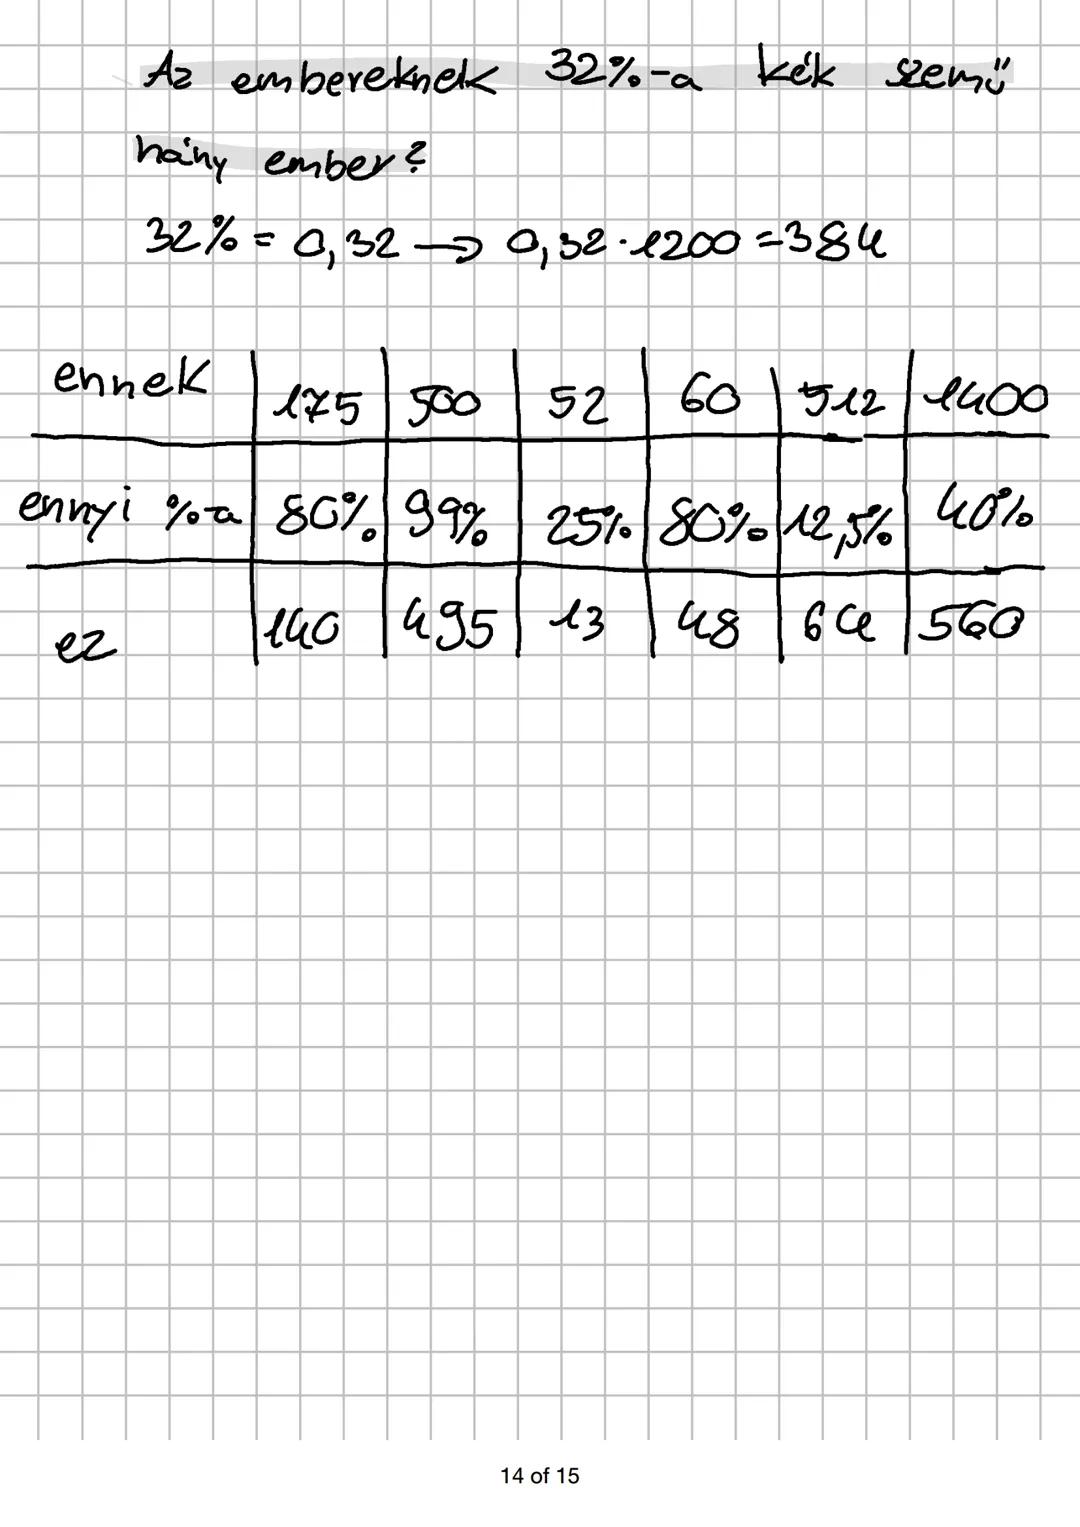 Az embereknek 32%-a kék szemű
hány ember?
32% = 0,32 → 0,32·1200=384
ennek 175 500 52 60 512 1400
ennyi %-a 80% 99% 25% 80% 12,5% 40%
ez 140 495 13 48 64 560
14 of 15